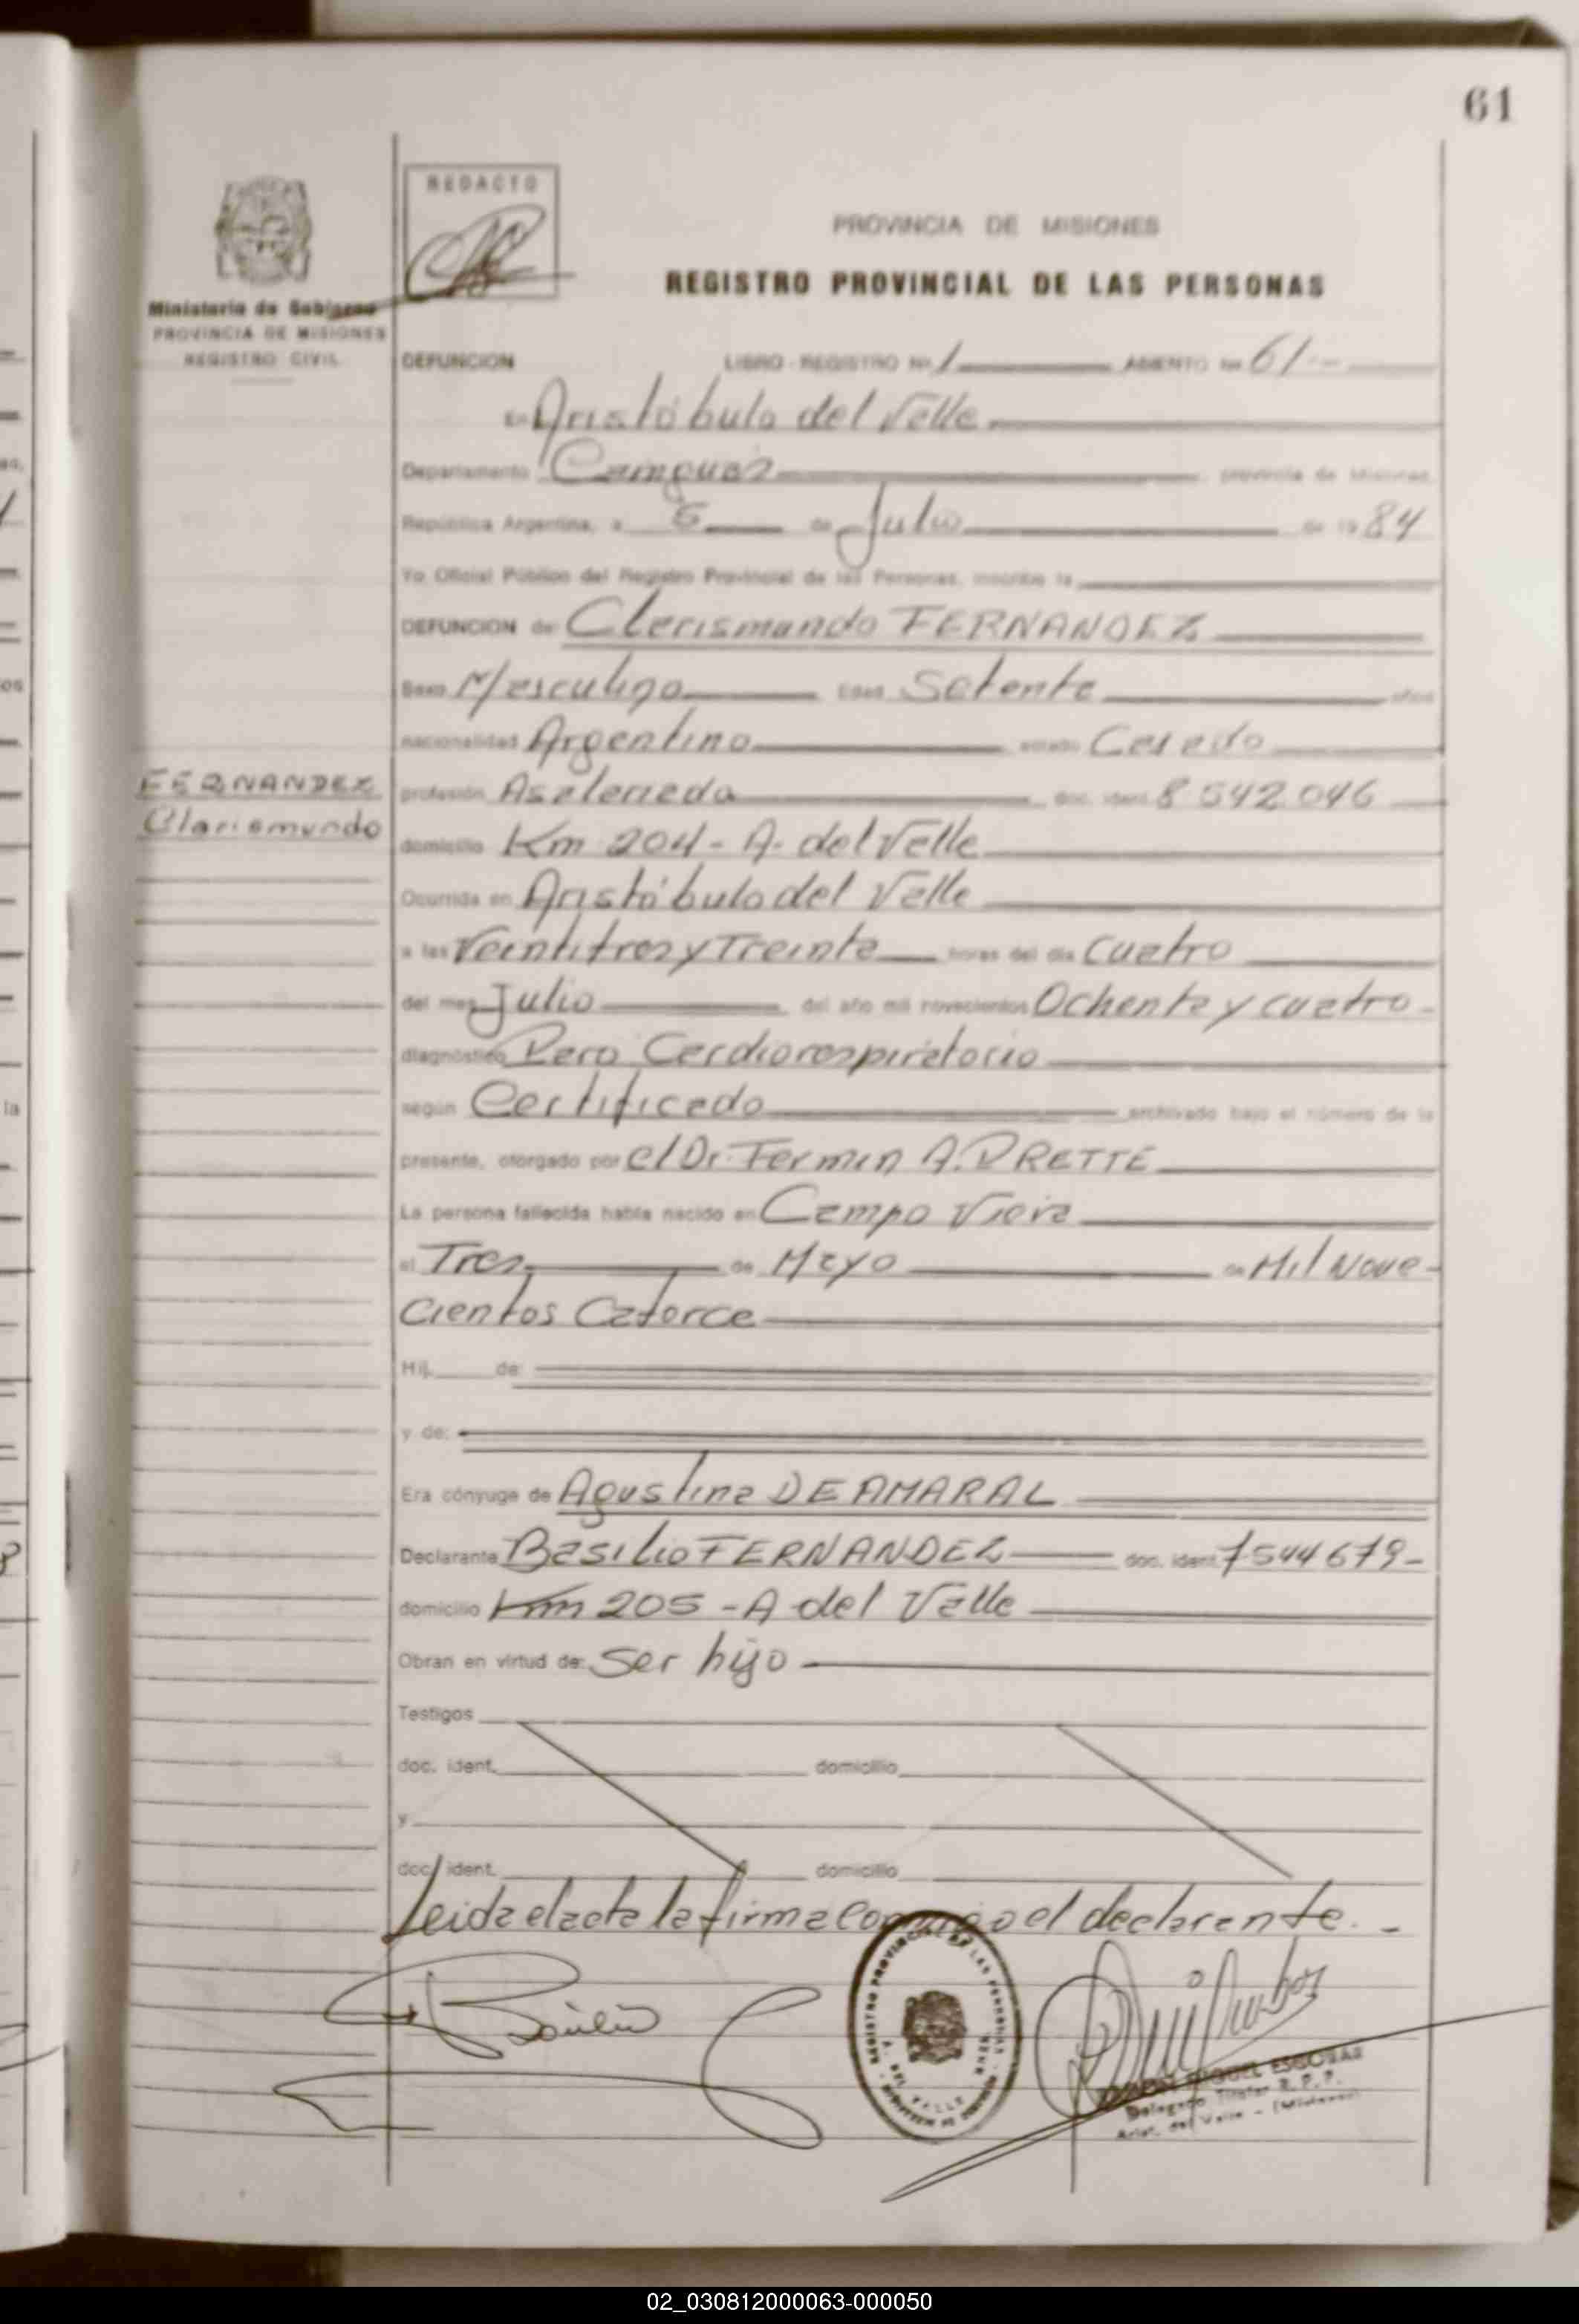 61
REDACTO
PROVINCIA DE MISIONES
REGISTRO PROVINCIAL DE LAS PERSONAS
Ministerio de Gobierno
PROVINCIA DE MISIONES
REGISTRO CIVIL
DEFUNCION LIBRO - REGISTRO No. 1 ASIENTO No. 61--
En Aristóbulo del Valle
Departamento Cainguas, provincia de Misiones,
República Argentina, a 5 de Julio de 19 84
Yo Oficial Público del Registro Provincial de las Personas, inscribo la
DEFUNCION de: Clarismundo FERNANDEZ
Sexo Masculino Edad Setenta años
nacionalidad Argentino estado Casado
FERNANDEZ
Clarismundo
profesión doc. ident. 8 542 046
domicilio Km 204 - A. del Valle
Ocurrida en Aristóbulo del Valle
a las Veintitres y Treinta horas del día Cuatro
del mes Julio del año mil novecientos Ochenta y cuatro -
diagnóstico Paro Cardiorespiratorio
según Certificado archivado bajo el número de la
presente, otorgado por el Dr. Fermin A.
La persona fallecida había nacido en Campo Viera
el Tres de Mayo de Mil Nove-
cientos Catorce
Hij de:
y de:
Era cónyuge de Agustina DE AMARAL
Declarante Basilio FERNANDEZ doc. ident. 7544679-
domicilio Km 205 - A del Valle
Obran en virtud de: Ser hijo
Testigos
doc. ident. domicilio
y
doc. ident. domicilio
Leida el acta la firma conmigo el declarante. -
REGISTRO PROVINCIAL DE LAS PERSONAS
A. DEL VALLE
MIGUEL ESCOBAR
Delegado Titular R. P. P.
Arist. del Valle - (Misiones)
02_030812000063-000050